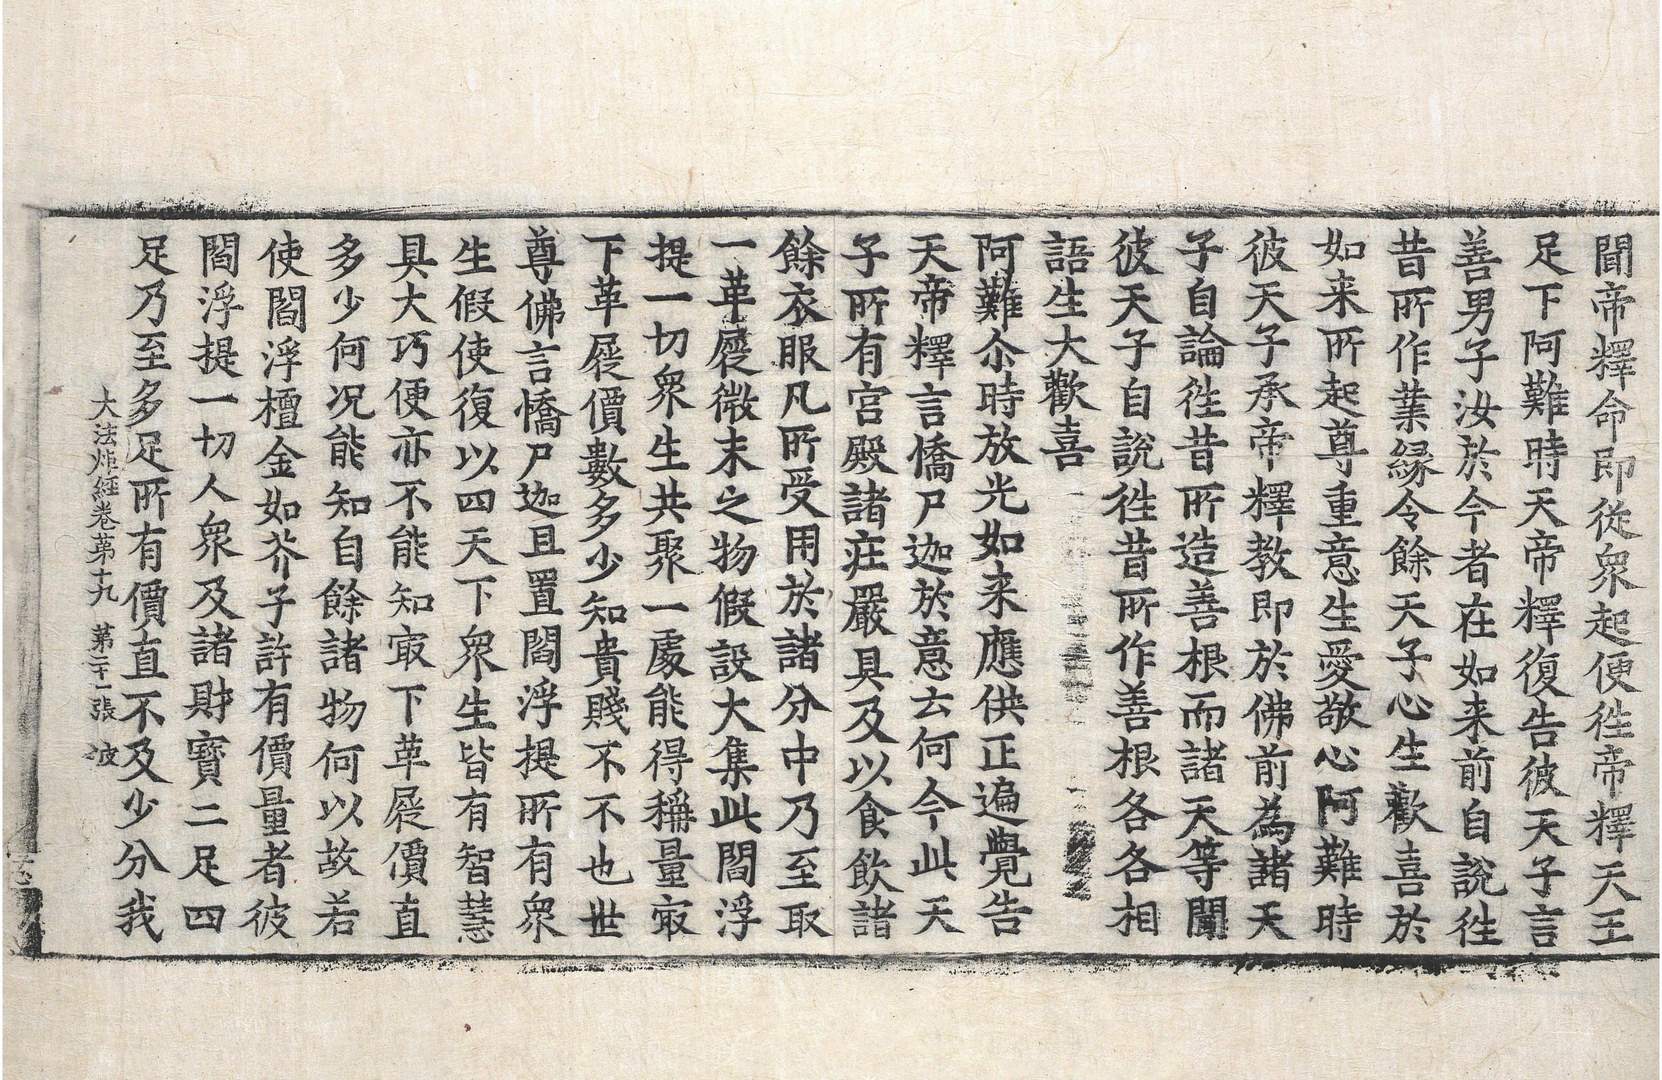 聞帝釋命即從衆起便徃帝釋天王
足下阿難時天帝釋復告彼天子言
善男子汝於今者在如来前自説徃
昔所作業縁令餘天子心生歡喜於
如来所起尊重意生愛敬心阿難時
彼天子承帝釋教即於佛前為諸天
子自論徃昔所造善根而諸天等聞
彼天子自説徃昔所作善根各各相
語生大歡喜
阿難尒時放光如来應供正遍覺告
天帝釋言憍尸迦於意云何今此天
子所有宫殿諸莊嚴具及以食飲諸
餘衣服凡所受用於諸分中乃至取
一革屣微末之物假設大集此閻浮
提一切衆生共聚一處能得稱量㝡
下革屣價數多少知貴賤不不也世
尊佛言憍尸迦且置閻浮提所有衆
生假使復以四天下衆生皆有智慧
具大巧便亦不能知㝡下革屣價直
多少何况能知自餘諸物何以故若
使閻浮檀金如芥子許有價量者彼
閻浮提一切人衆及諸財寳二足四
足乃至多足所有價直不及少分我
大法炬經卷第十九 第二十一張 彼